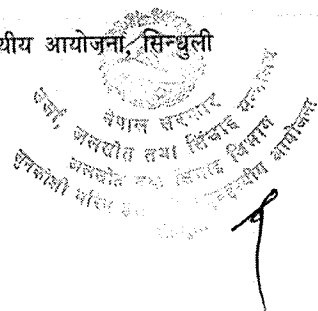 यीय आयोजना, सिन्धुली
नेपाल सरकार
उर्जा, जलस्रोत तथा सिंचाइ मन्त्रालय
जलस्रोत तथा सिंचाइ विभाग
सुनकोशी मरिन आयोजना